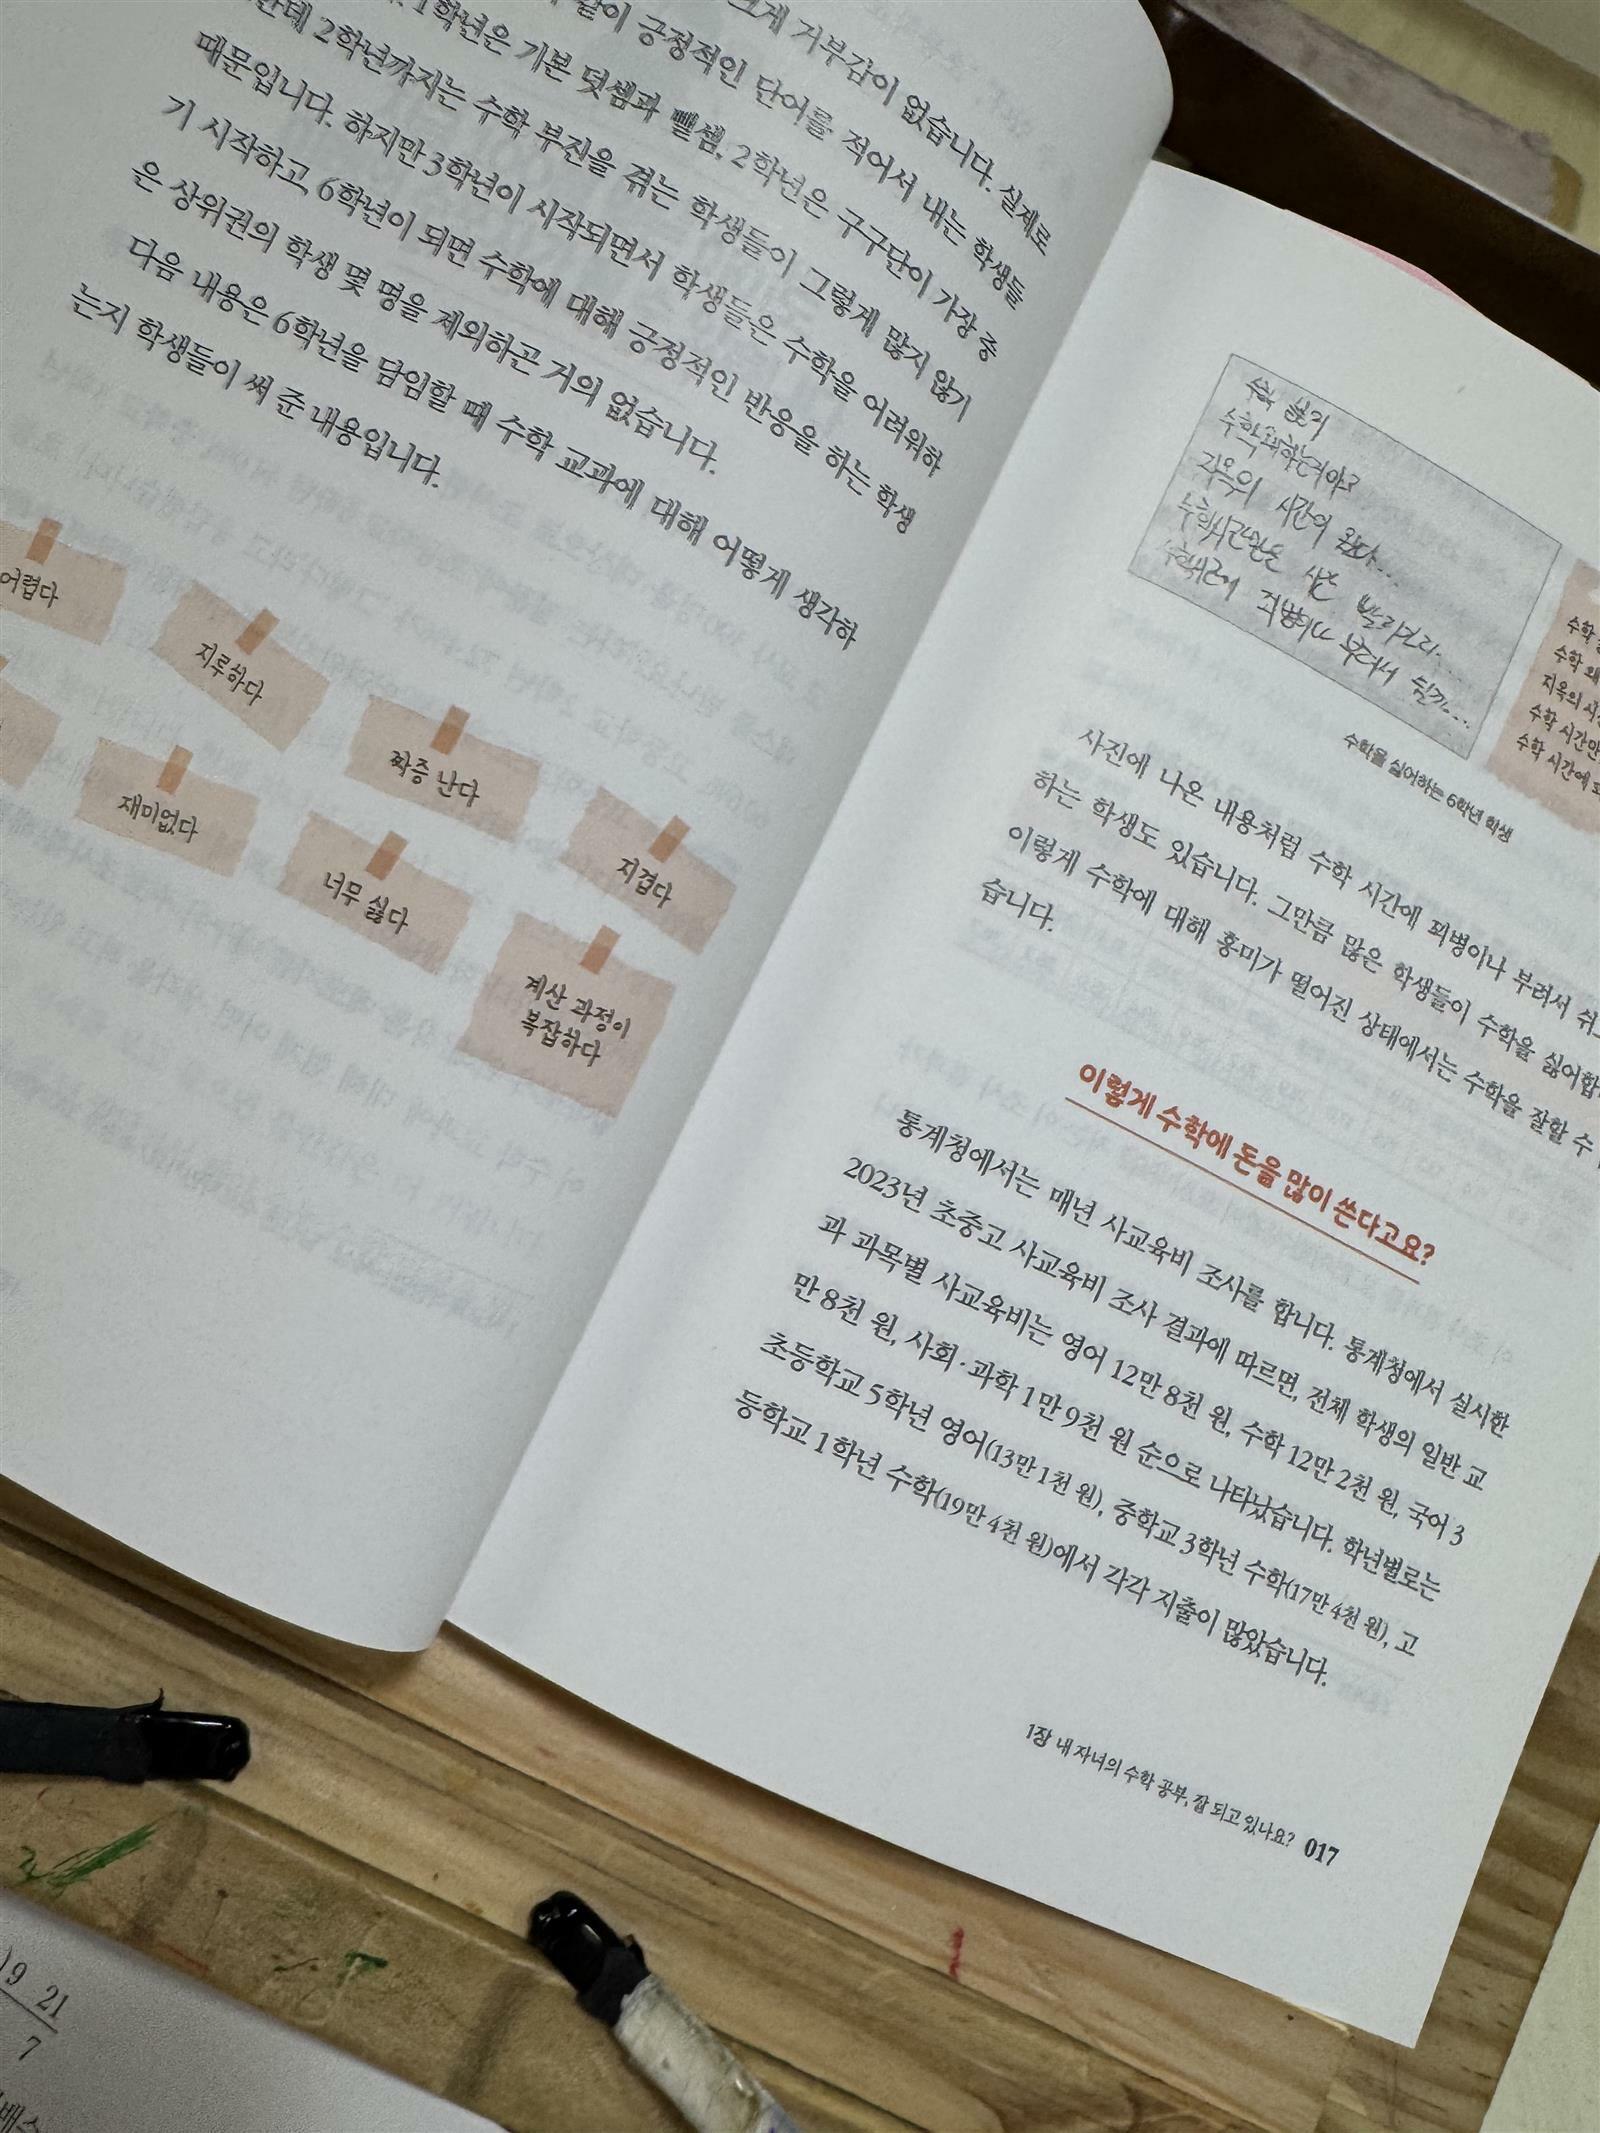 크게 거부감이 없습니다. 실제로
같이 긍정적인 단어를 적어서 내는 학생들
1학년은 기본 덧셈과 뺄셈, 2학년은 구구단이 가장 중
2학년까지는 수학 부진을 겪는 학생들이 그렇게 많지 않기
때문입니다. 하지만 3학년이 시작되면서 학생들은 수학을 어려워하
기 시작하고, 6학년이 되면 수학에 대해 긍정적인 반응을 하는 학생
은 상위권의 학생 몇 명을 제외하곤 거의 없습니다.
다음 내용은 6학년을 담임할 때 수학 교과에 대해 어떻게 생각하
는지 학생들이 써 준 내용입니다.
어렵다
지루하다
짜증 난다
지겹다
재미없다
너무 싫다
계산 과정이
복잡하다
수학
수학 왜 하는거야?
지옥의 시간이 왔다...
수학시간만은 시간
수학시간에 꾀병이나 부려서 쉴까...
수학
수학 왜
지옥의 시
수학 시간만
수학 시간에
수학을 싫어하는 6학년 학생
사진에 나온 내용처럼 수학 시간에 꾀병이나 부려서 쉬
하는 학생도 있습니다. 그만큼 많은 학생들이 수학을 싫어합
이렇게 수학에 대해 흥미가 떨어진 상태에서는 수학을 잘할 수
습니다.
이렇게 수학에 돈을 많이 쓴다고요?
통계청에서는 매년 사교육비 조사를 합니다. 통계청에서 실시한
2023년 초중고 사교육비 조사 결과에 따르면, 전체 학생의 일반 교
과 과목별 사교육비는 영어 12만 8천 원, 수학 12만 2천 원, 국어 3
만 8천 원, 사회·과학 1만 9천 원 순으로 나타났습니다. 학년별로는
초등학교 5학년 영어(13만 1천 원), 중학교 3학년 수학(17만 4천 원), 고
등학교 1학년 수학(19만 4천 원)에서 각각 지출이 많았습니다.
1장 내 자녀의 수학 공부, 잘 되고 있나요? 017
)9 21
7